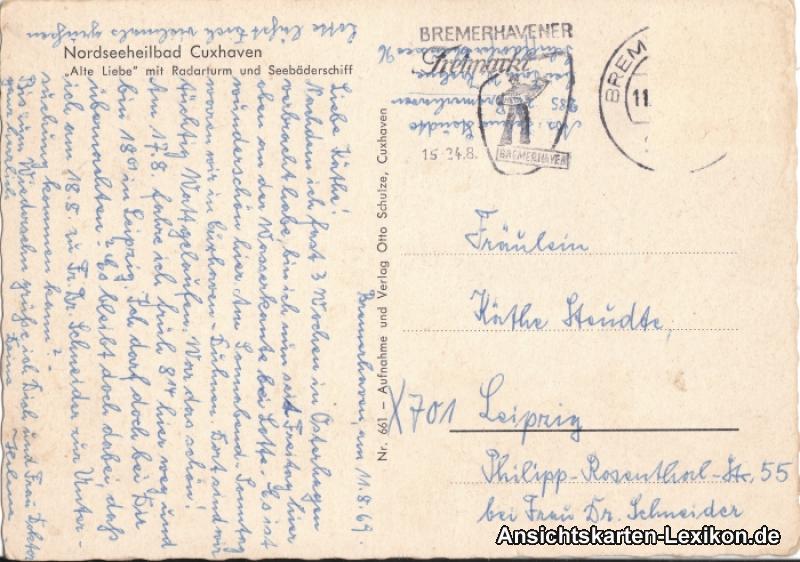 Lotte läßt Euch vielmals grüßen
Nordseeheilbad Cuxhaven
„Alte Liebe" mit Radarturm und Seebäderschiff
Bremerhaven, am 11.8.69.
Liebe Käthe!
Nachdem ich fast 3 Wochen in Osterhagen
verbracht habe, bin ich nun seit Freitag hier
oben an der Wasserkante bei Lotte. Es ist
wunderschön hier. Am Sonnabend-Sonntag
waren wir in Cuxhaven-Duhnen. Dort sind wir
tüchtig Watt gelaufen. War das schön!
Am 17.8. fahre ich früh 8¹⁴ hier weg und
bin 18⁰¹ in Leipzig. Ich darf doch bei Dir
übernachten? Es bleibt doch dabei, daß
ich am 18.8. zu Fr. Dr. Schneider zur Unter-
suchung kommen kann?
Bis zum Wiedersehn grüße ich Dich und Frau Doktor
Nr. 661 — Aufnahme und Verlag Otto Schulze, Cuxhaven
BREMERHAVENER
Treffpunkt
15.-24.8.
BREMERHAVEN
BREM
11.
Abs.:
285 Bremerhaven
Fräulein
Käthe Steudte,
X701 Leipzig
Philipp-Rosenthal-Str. 55
bei Frau Dr. Schneider
Ansichtskarten-Lexikon.de